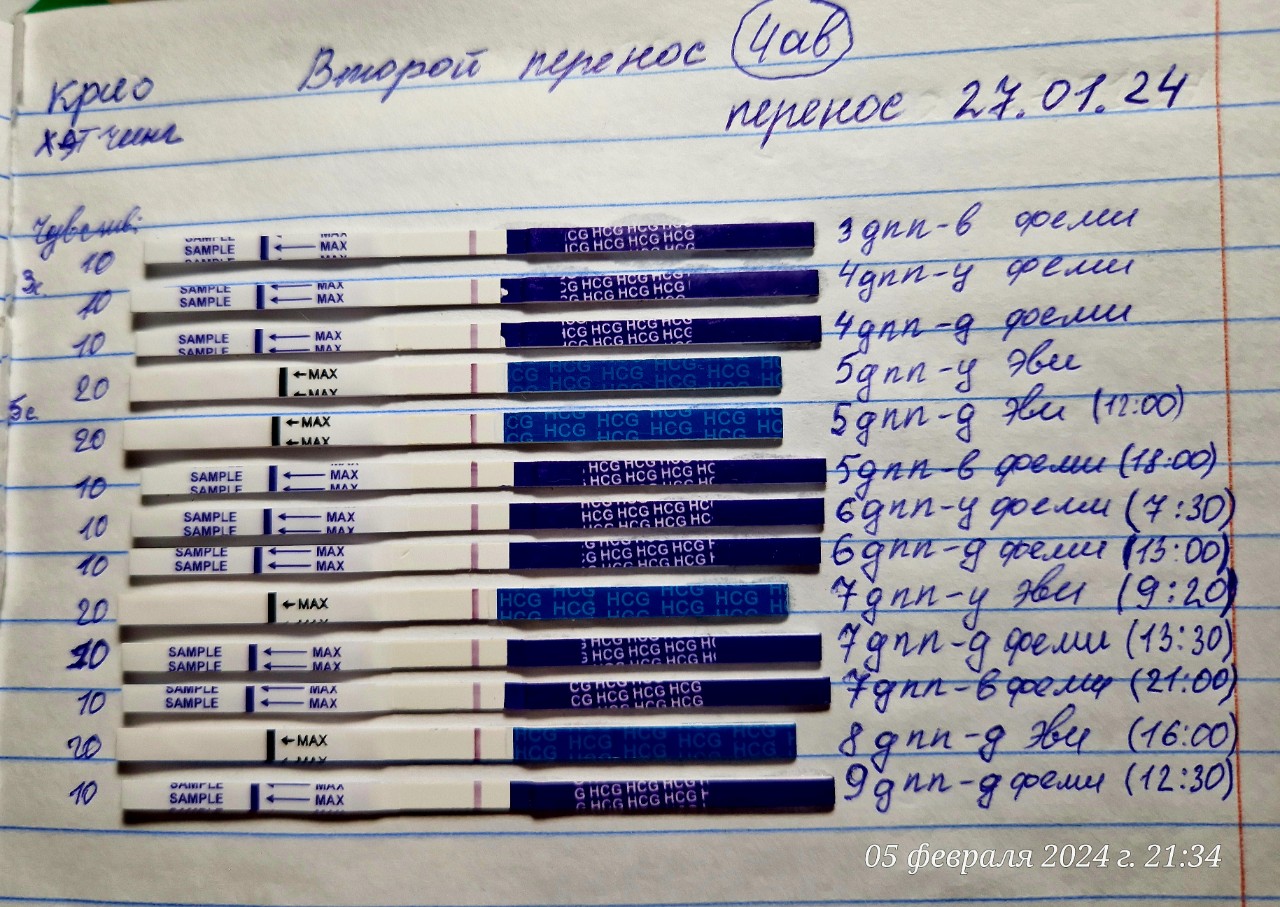 Второй перенос 4ав
Крио
хэтчинг
перенос 27.01.24
Чувств:
10 SAMPLE SAMPLE MAX MAX CG HCG HCG HCG HCG HCG HCG 3дпп-в феми
3с.
10 SAMPLE SAMPLE MAX MAX CG HCG HCG HCG CG HCG HCG HCG 4дпп-у феми
10 SAMPLE SAMPLE MAX MAX HCG HCG HCG HCG HCG HCG 4дпп-д феми
20 MAX MAX CG HCG HCG HCG HCG HCG 5дпп-у Эви
5с
20 MAX MAX CG HCG HCG HCG HCG HCG 5дпп-д Эви (12:00)
10 SAMPLE SAMPLE MAX MAX HCG HCG HCG HC HCG HCG HCG 5дпп-в феми (18:00)
10 SAMPLE SAMPLE MAX MAX HCG HCG HCG HCG HCG HCG 6дпп-у феми (7:30)
10 SAMPLE SAMPLE MAX MAX HCG HCG HCG HCG HCG HCG 6дпп-д феми (13:00)
20 MAX HCG HCG HCG HCG HCG HCG 7дпп-у Эви (9:20)
10 SAMPLE SAMPLE MAX MAX HCG HCG HCG HCG HCG HCG 7дпп-д феми (13:30)
10 SAMPLE SAMPLE MAX MAX CG HCG HCG HCG CG HCG HCG HCG 7дпп-в феми (21:00)
20 MAX HCG HCG HCG HCG 8дпп-д Эви (16:00)
10 SAMPLE SAMPLE MAX MAX CG HCG HCG HCG HCG HCG HCG 9дпп-д феми (12:30)
05 февраля 2024 г. 21:34